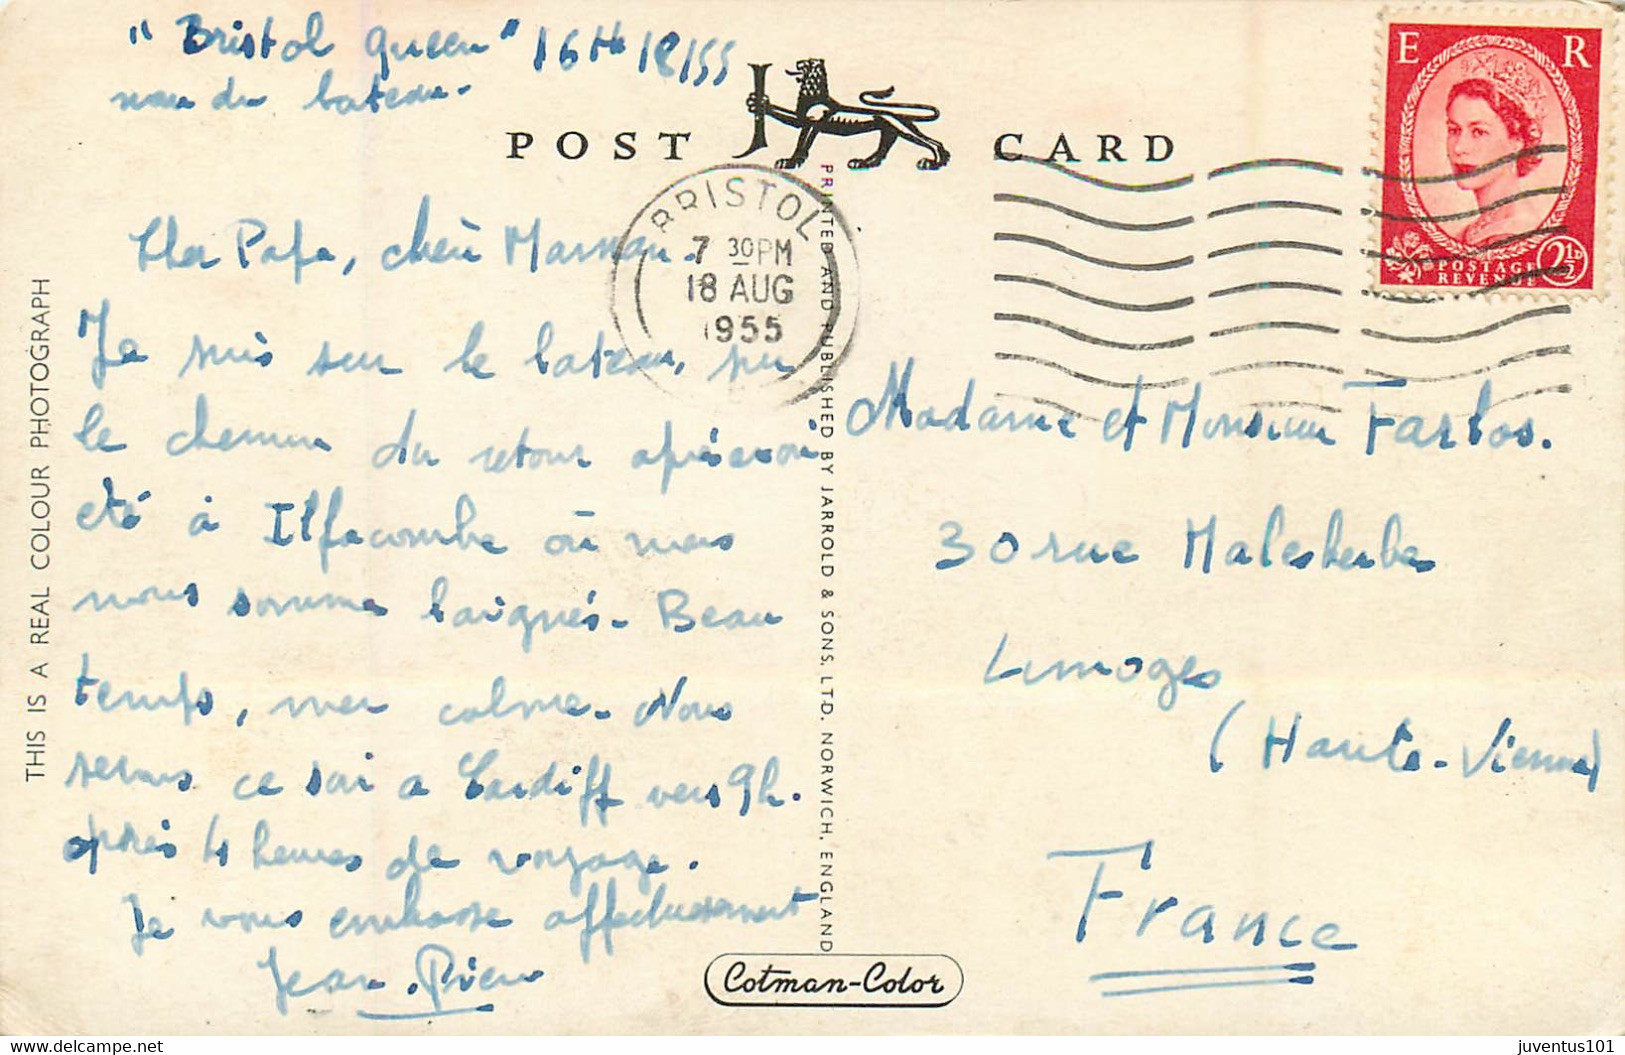 "Bristol Queen" 16th /8/55
nom du bateau.
POST CARD
BRISTOL
7 30PM
18 AUG
1955
E R
POSTAGE
REVENUE
2½D
Cher Papa, chère Maman.
Je suis sur le bateau, sur
le chemin du retour après avoir
été à Ilfacombe où nous
nous sommes baignés. Beau
temps, mer calme. Nous
serons ce soir à Cardiff vers 9h.
après 4 heures de voyage.
Je vous embrasse affectueusement
Jean-Pierre
Madame et Monsieur
30 rue Malesherbes
Limoges
(Haute-Vienne)
France
THIS IS A REAL COLOUR PHOTOGRAPH
PRINTED AND PUBLISHED BY JARROLD & SONS, LTD. NORWICH, ENGLAND
Cotman-Color
delcampe.net
juventus101